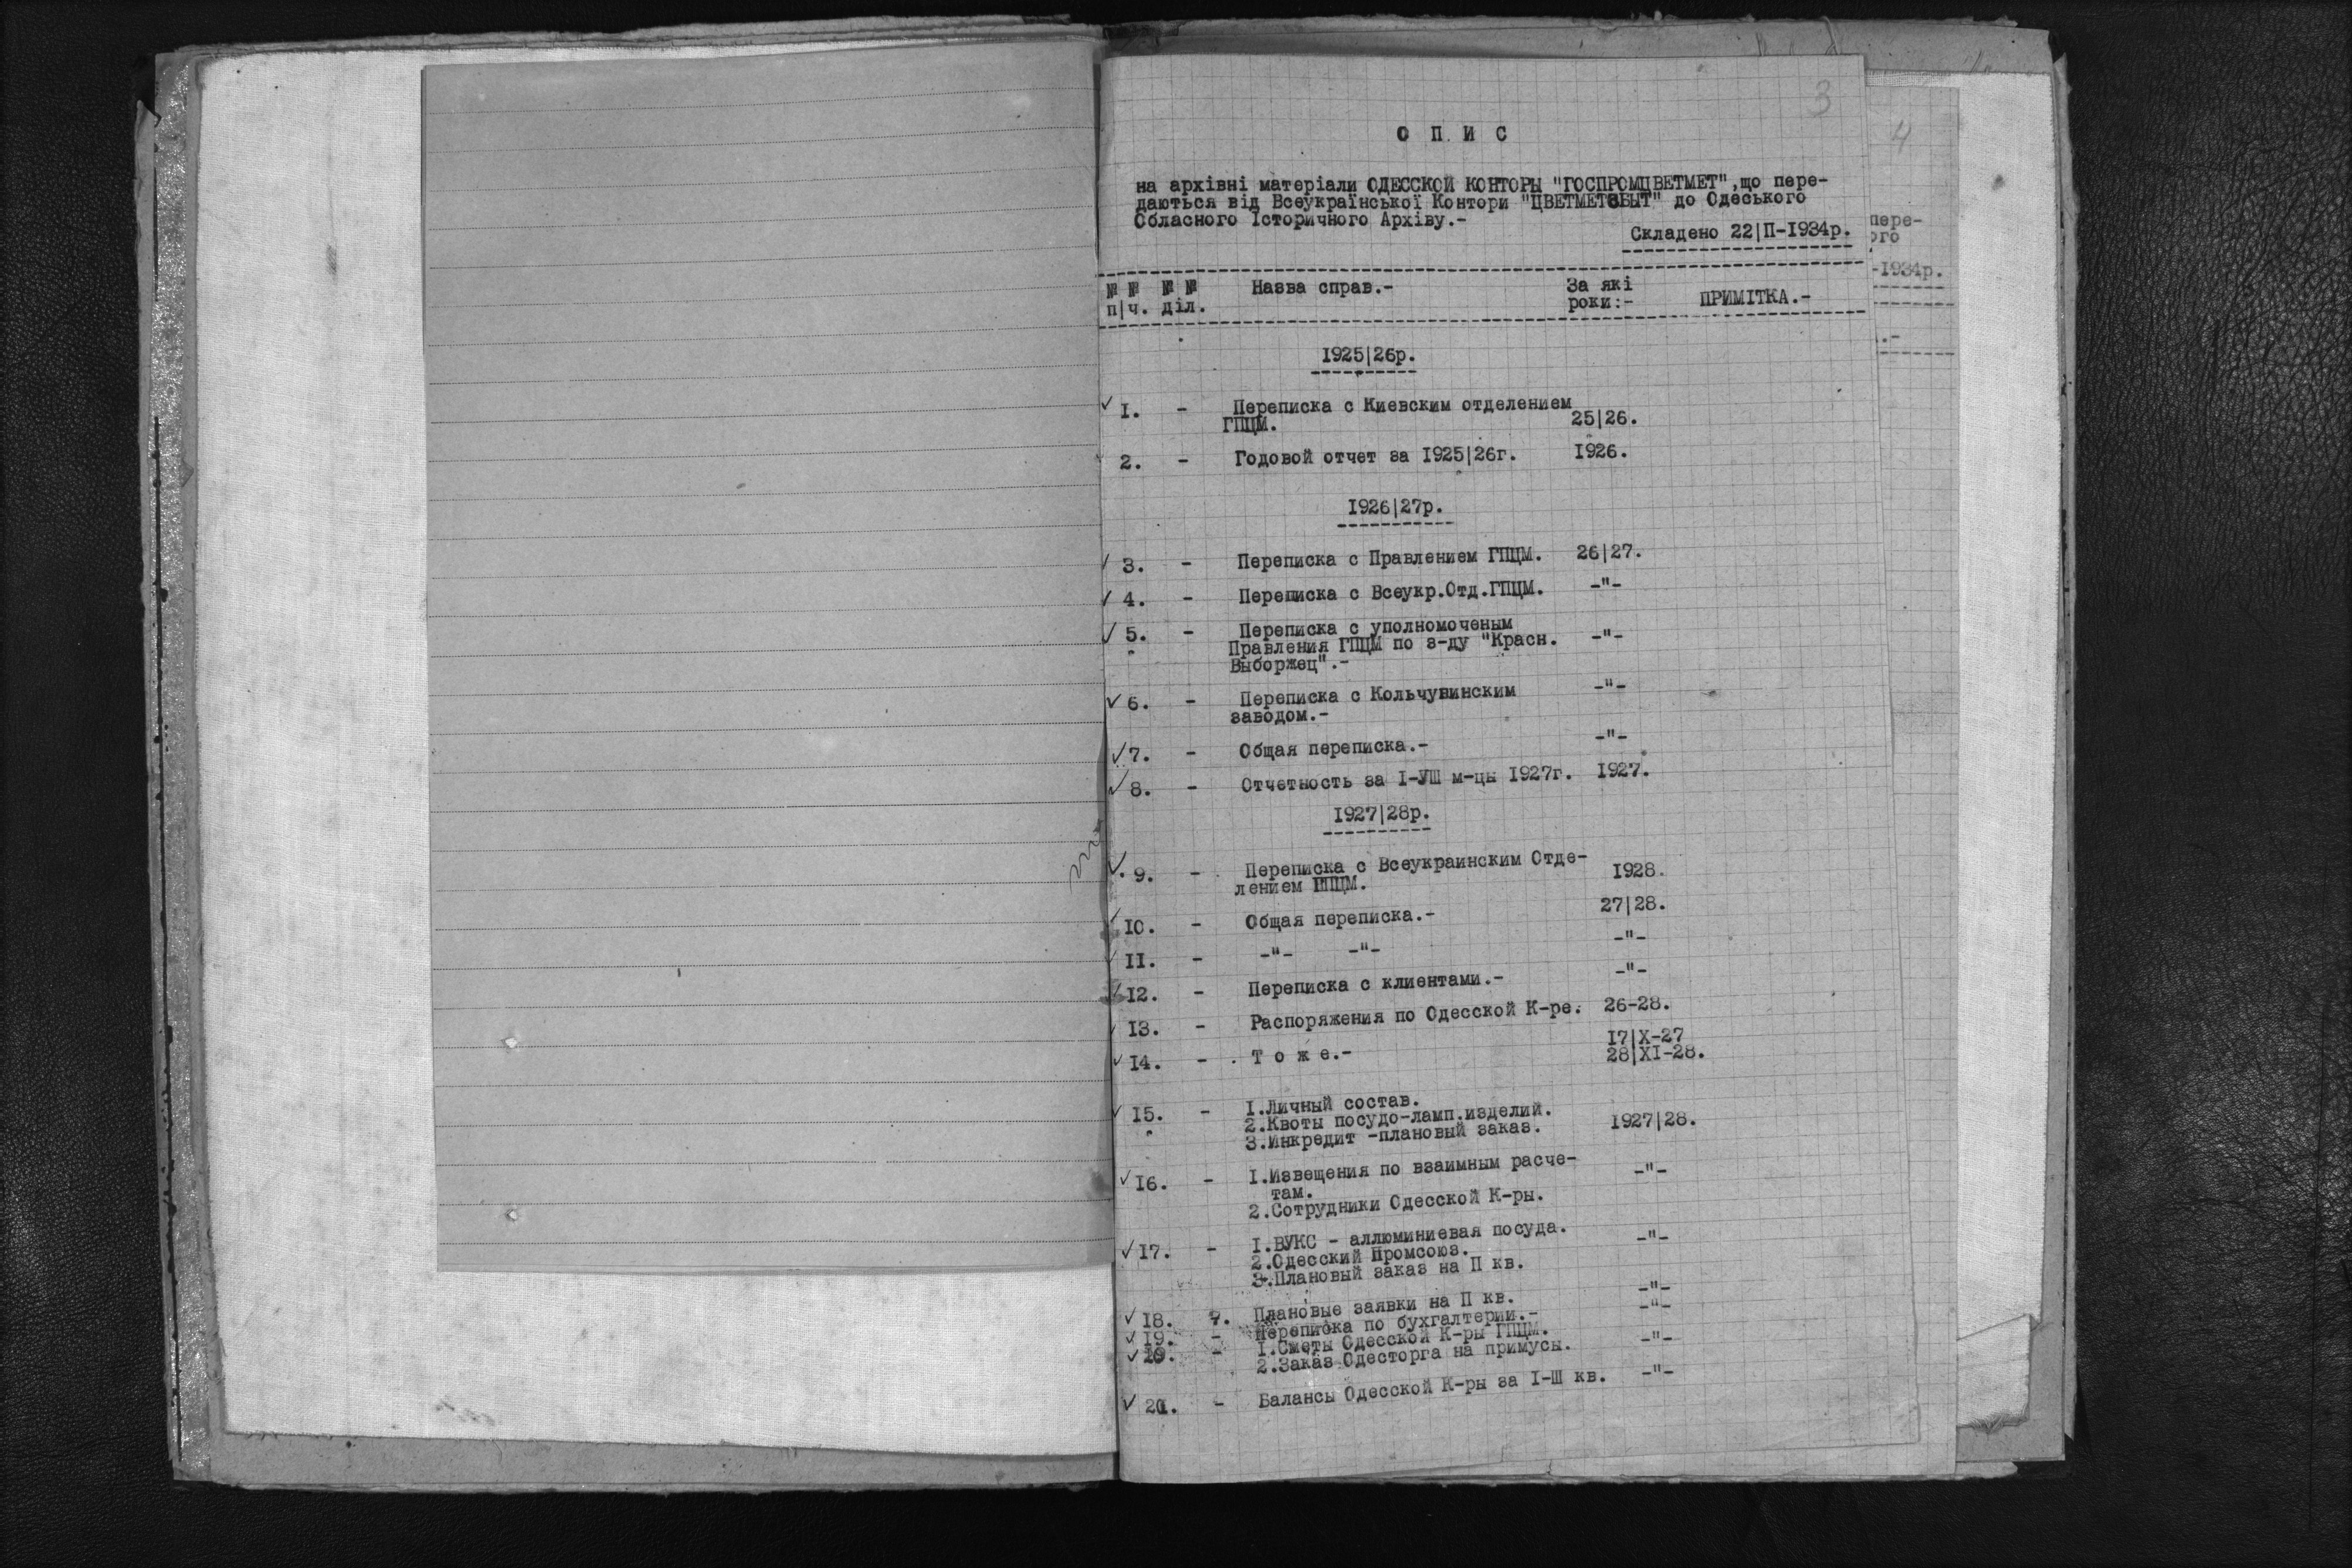 3
О П И С
на архівні матеріали ОДЕССКОЙ КОНТОРЫ "ГОСПРОМЦВЕТМЕТ", що пере-
даються від Всеукраїнської Контори "ЦВЕТМЕТЗБЫТ" до Одеського
Обласного Історичного Архіву.-
Складено 22|П-1934р.
№ № № № Назва справ.- За які
п|ч. діл. роки:- ПРИМІТКА.-
1925|26р.
1. - Переписка с Киевским отделением
ГПЦМ. 25|26.
2. - Годовой отчет за 1925|26г. 1926.
1926|27р.
3. - Переписка с Правлением ГПЦМ. 26|27.
4. - Переписка с Всеукр.Отд.ГПЦМ. -"-
5. - Переписка с уполномоченым
Правления ГПЦМ по з-ду "Красн. -"-
Выборжец".-
6. - Переписка с Кольчувинским -"-
заводом.-
7. - Общая переписка.- -"-
8. - Отчетность за I-УШ м-цы 1927г. 1927.
1927|28р.
9. - Переписка с Всеукраинским Отде-
лением ГПЦМ. 1928.
10. - Общая переписка.- 27|28.
11. - -"- -"- -"-
12. - Переписка с клиентами.- -"-
13. - Распоряжения по Одесской К-ре. 26-28.
14. - Т о ж е.- 17|X-27
28|XI-28.
15. - 1.Личный состав.
2.Квоты посудо-ламп.изделий.
3.Инкредит -плановый заказ. 1927|28.
16. - 1.Извещения по взаимным расче-
там. -"-
2.Сотрудники Одесской К-ры.
17. - 1.ВУКС - аллюминиевая посуда. -"-
2.Одесский Промсоюз.
3.Плановый заказ на П кв.
18. Плановые заявки на П кв. -"-
19. - Переписка по бухгалтерии.- -"-
20. - 1.Сметы Одесской К-ры ГПЦМ.
2.Заказ Одесторга на примусы. -"-
21. - Балансы Одесской К-ры за I-Ш кв. -"-
4
пере-
ого
-1934р.
.-